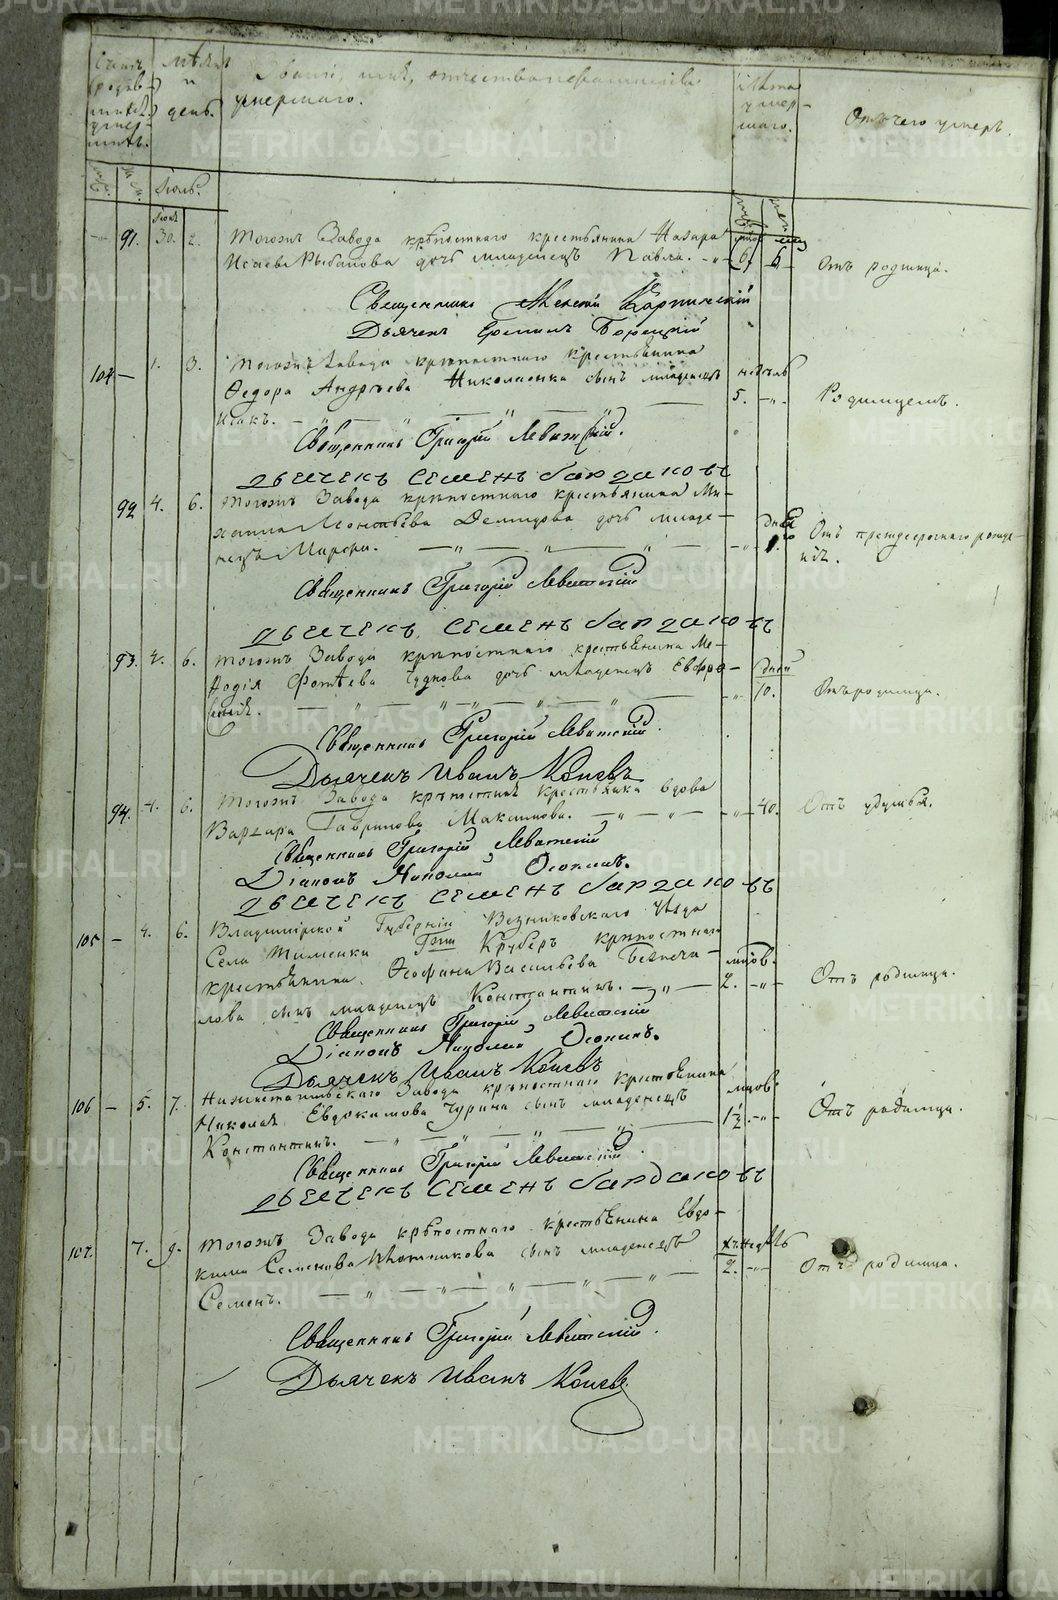 Счетъ
умер-
шихъ.
Мѣсяцъ
и
день.
Званіе, имя, отчество и фамилія
умершаго.
Лѣта
умер-
шаго.
Отъ чего умеръ.
Іюль.
91. 30. 2. Тогожъ Завода крѣпостнаго крестьянина Назара
Исаева Рыбакова дочь младенецъ Павла. 6. Отъ родимца.
Священникъ Алексей Карпинскій
Дьячекъ
104 — 1. 3. Тогожъ Завода крѣпостнаго крестьянина
Ѳедора Андрѣева Николаенка сынъ младенецъ недѣль
Исакъ. 5. Родимцемъ.
Священникъ Григорій Левитскій.
Дьячекъ Семенъ Бардаковъ
92 4. 6. Тогожъ Завода крѣпостнаго крестьянина Ми-
хаила Леонтьева Демидова дочь младе-
нецъ Марфа. Отъ преждесрочнаго рожде-
нія.
Священникъ Григорій Левитскій
Дьячекъ Семенъ Бардаковъ
93. 4. 6. Тогожъ Завода крѣпостнаго крестьянина Ме-
ѳодія Фотѣева Чуднова дочь младенецъ Евфро- дней
10. Отъ родимца.
Священникъ Григорій Левитскій.
Дьячекъ Иванъ Коневъ
94. 4. 6. Тогожъ Завода крѣпостная крестьянка вдова
Варвара Гаврилова Максимова. 40. Отъ удушья.
Священникъ Григорій Левитскій
Діаконъ Николай Осокинъ.
Дьячекъ Семенъ Бардаковъ
105 — 4. 6. Владимірской Губерніи Везниковскаго Уѣзда
Села Крѣпостнаго
крестьянина Ѳеофана Васильева Безпеча-
лова сынъ младенецъ Константинъ. 2. Отъ родимца.
Священникъ Григорій Левитскій
Діаконъ Николай Осокинъ.
Дьячекъ Иванъ Коневъ
106 — 5. 7. Нижнетагильскаго Завода крѣпостнаго крестьянина
Николая Евдокимова Чурина сынъ младенецъ
Константинъ. 1½. Отъ родимца.
Священникъ Григорій Левитскій.
Дьячекъ Семенъ Бардаковъ
107. 7. 9. Тогожъ Завода крѣпостнаго крестьянина Евдо-
кима Семенова Плотникова сынъ младенецъ
Семенъ. 2. Отъ родимца.
Священникъ Григорій Левитскій.
Дьячекъ Иванъ Коневъ.
METRIKI.GASO-URAL.RU